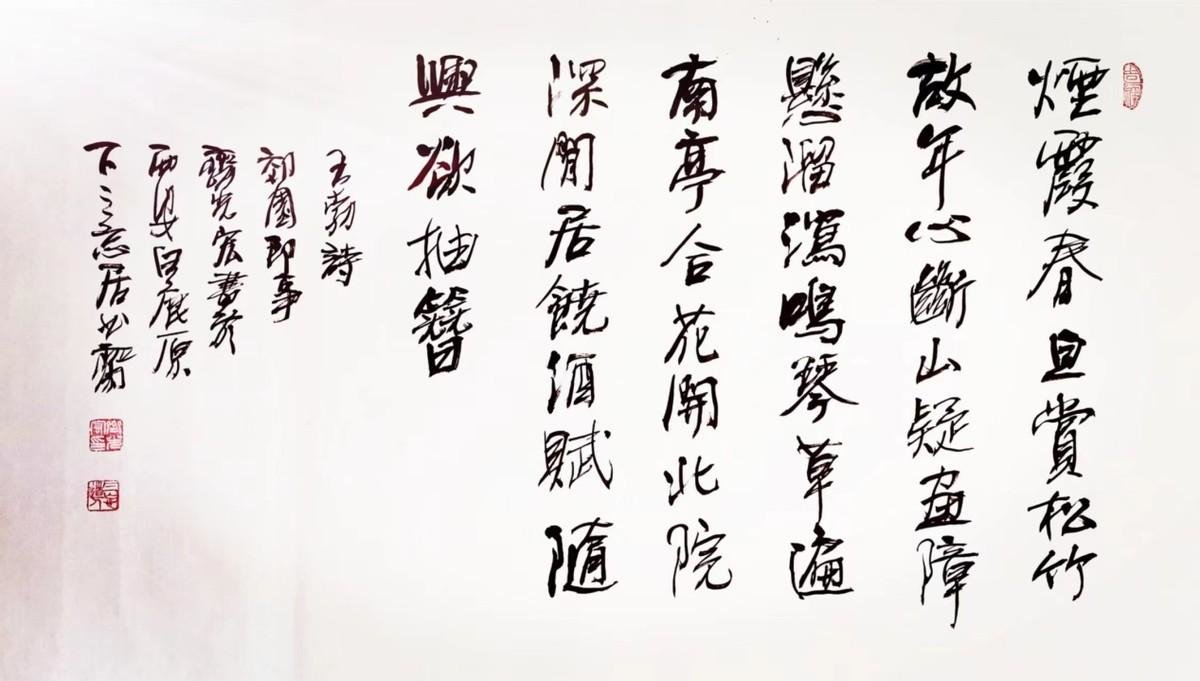 煙霞春旦賞松竹
故年心斷山疑畫障
懸溜瀉鳴琴草遍
南亭合花開北院
深閒居饒酒賦隨
興欲抽簪
王勃詩
郊園即事
光宏書於
西安白鹿原
下之忘居